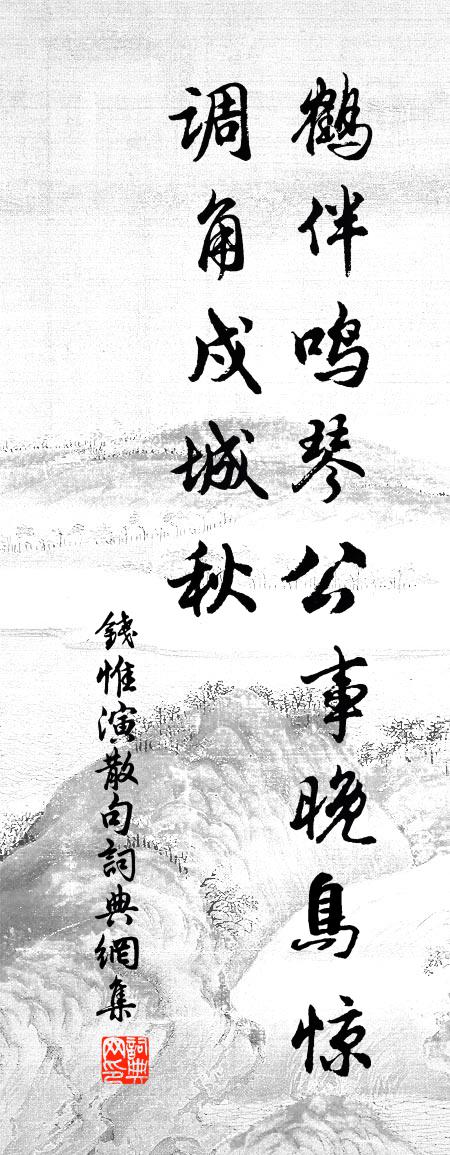 鹤伴鸣琴公事晚鸟惊
调角戍城秋
錢惟演散句詞典網集
詞典网印